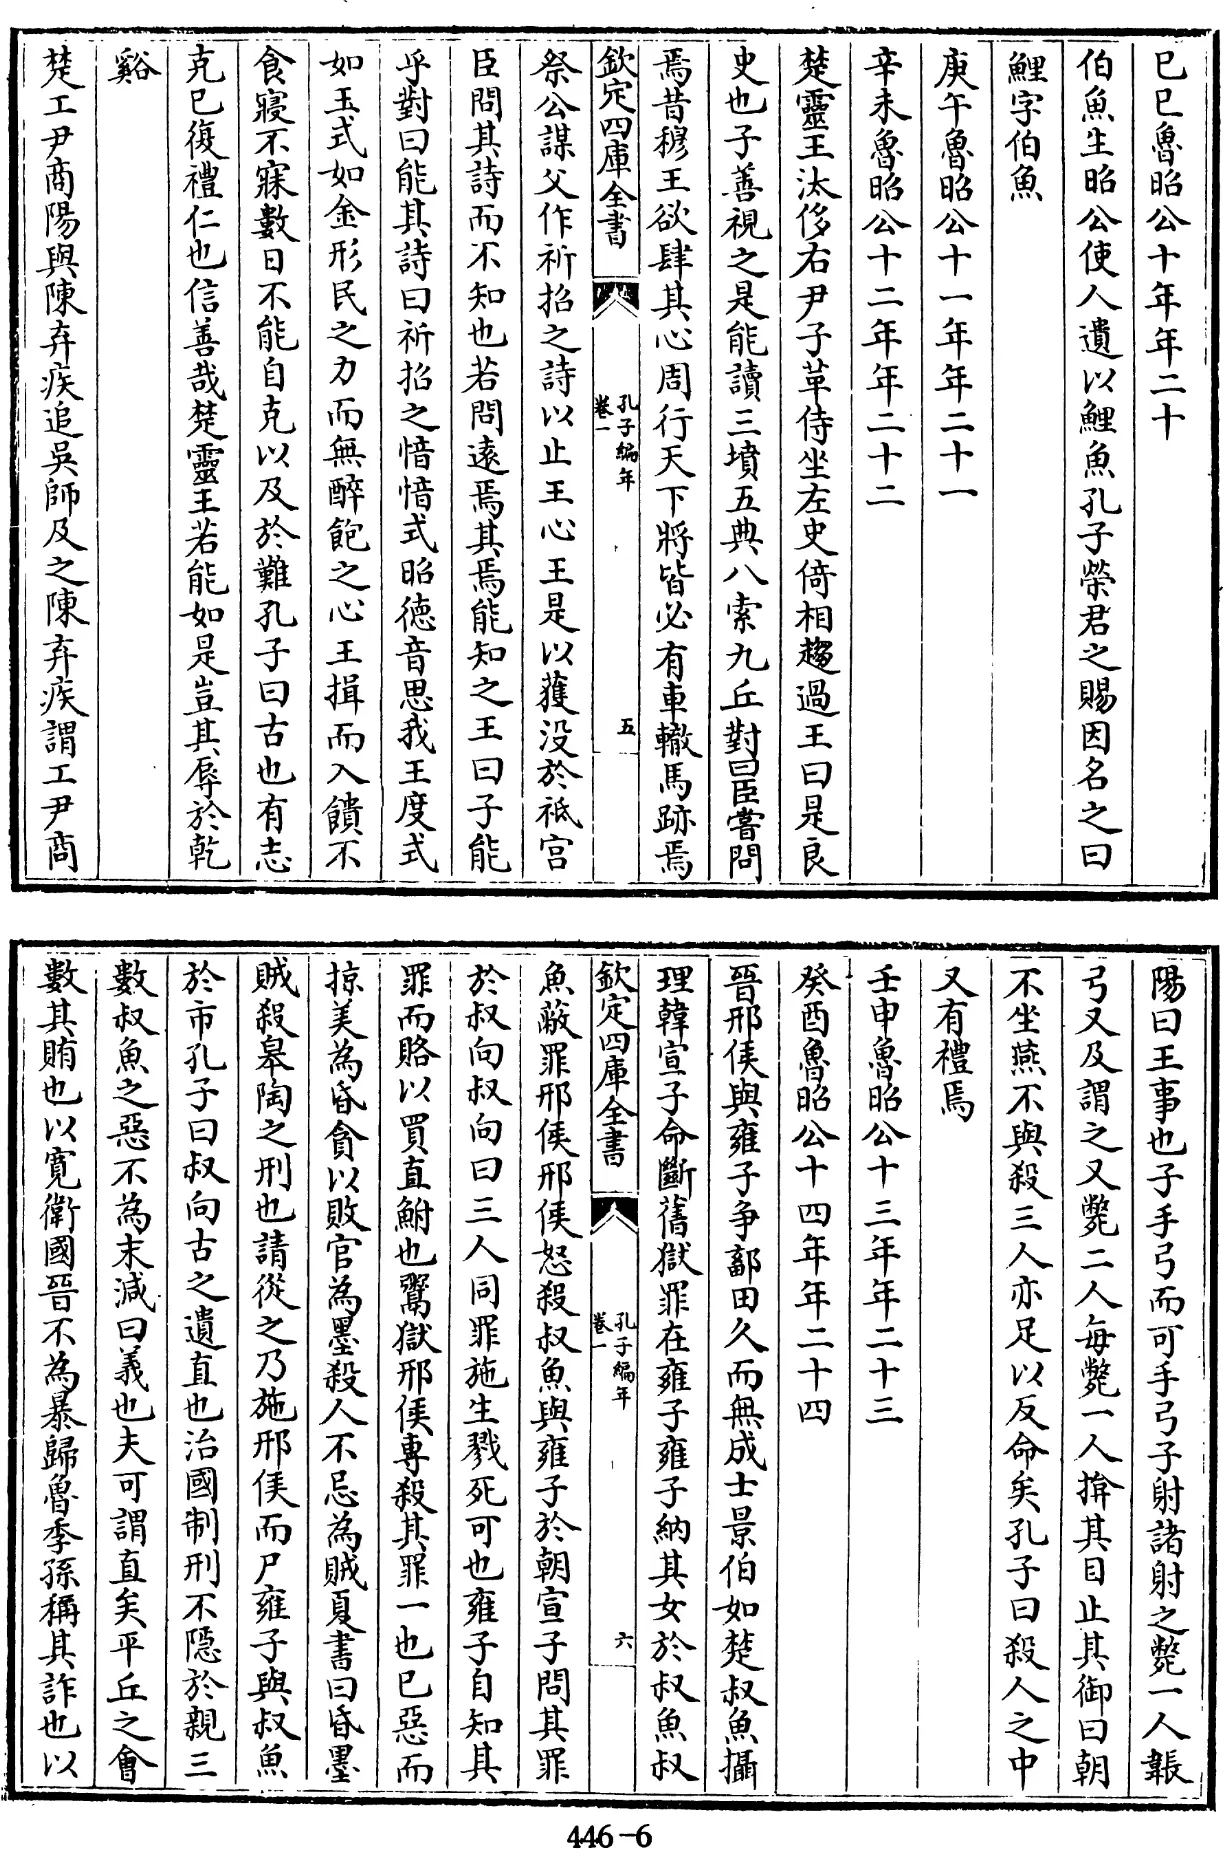 己巳魯昭公十年年二十
伯魚生昭公使人遺以鯉魚孔子榮君之賜因名之曰
鯉字伯魚
庚午魯昭公十一年年二十一
辛未魯昭公十二年年二十二
楚靈王汰侈右尹子革侍坐左史倚相趨過王曰是良
史也子善視之是能讀三墳五典八索九丘對曰臣嘗問
焉昔穆王欲肆其心周行天下將皆必有車轍馬跡焉
欽定四庫全書
孔子編年
卷一
五
祭公謀父作祈招之詩以止王心王是以獲沒於祗宮
臣問其詩而不知也若問遠焉其焉能知之王曰子能
乎對曰能其詩曰祈招之愔愔式昭德音思我王度式
如玉式如金形民之力而無醉飽之心王揖而入饋不
食寢不寐數日不能自克以及於難孔子曰古也有志
克己復禮仁也信善哉楚靈王若能如是豈其辱於乾
谿
楚工尹商陽與陳弃疾追吳師及之陳弃疾謂工尹商
陽曰王事也子手弓而可手弓子射諸射之斃一人韔
弓又及謂之又斃二人每斃一人揜其目止其御曰朝
不坐燕不與殺三人亦足以反命矣孔子曰殺人之中
又有禮焉
壬申魯昭公十三年年二十三
癸酉魯昭公十四年年二十四
晉邢侯與雍子爭鄐田久而無成士景伯如楚叔魚攝
理韓宣子命斷舊獄罪在雍子雍子納其女於叔魚叔
欽定四庫全書
孔子編年
卷一
六
魚蔽罪邢侯邢侯怒殺叔魚與雍子於朝宣子問其罪
於叔向叔向曰三人同罪施生戮死可也雍子自知其
罪而賂以買直鮒也鬻獄邢侯專殺其罪一也已惡而
掠美為昏貪以敗官為墨殺人不忌為賊夏書曰昏墨
賊殺皋陶之刑也請從之乃施邢侯而尸雍子與叔魚
於市孔子曰叔向古之遺直也治國制刑不隱於親三
數叔魚之惡不為末減曰義也夫可謂直矣平丘之會
數其賄也以寬衛國晉不為暴歸魯季孫稱其詐也以
446-6